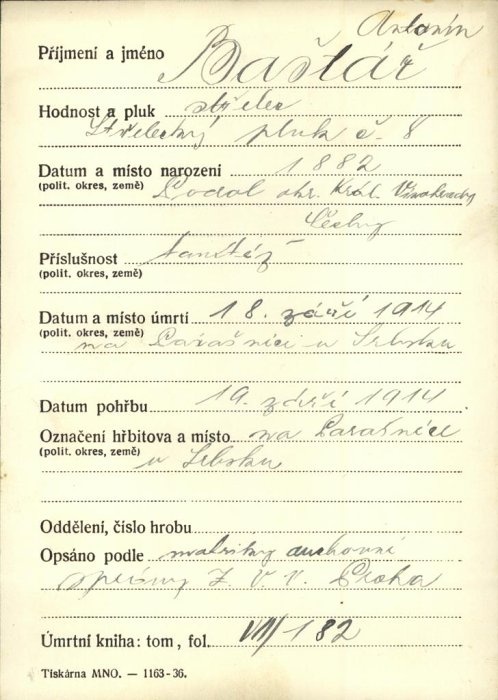 Antonín
Příjmení a jméno Baštář
Hodnost a pluk střelec
Střelecký pluk č. 8
Datum a místo narození 1882
(polit. okres, země) Podol okr. Král. Vinohrady
Čechy
Příslušnost tamtéž
(polit. okres, země)
Datum a místo úmrtí 18. září 1914
(polit. okres, země)
na Parašnici v Srbsku
Datum pohřbu 19. září 1914
Označení hřbitova a místo na Parašnici
(polit. okres, země)
v Srbsku
Oddělení, číslo hrobu
Opsáno podle matriky duchovní
správy Z. V. V. Praha
Úmrtní kniha: tom, fol. VII/182
Tiskárna MNO. — 1163-36.